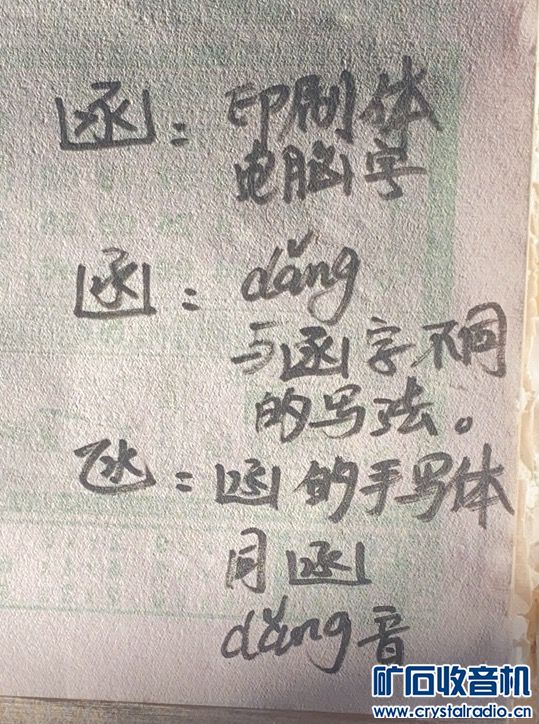 函：印刷体
电脑字
函：dǎng
与函字不同
的写法。
氹：函的手写体
同函
dǎng音
矿石收音机
www.crystalradio.cn